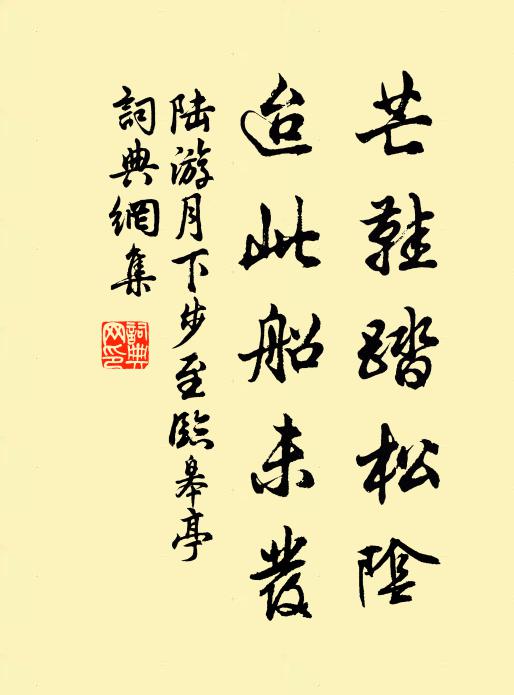 芒鞋踏松陰
迨此船未發
陆游月下步至臨皋亭
詞典網集
詞典网印